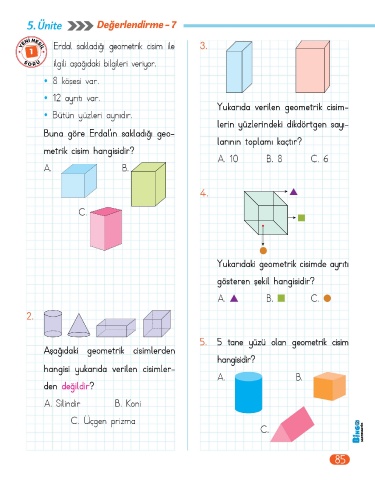 5. Ünite Değerlendirme - 7
YENİ NESİL
1
SORU
Erdal sakladığı geometrik cisim ile
ilgili aşağıdaki bilgileri veriyor.
• 8 köşesi var.
• 12 ayrıtı var.
• Bütün yüzleri aynıdır.
Buna göre Erdal'ın sakladığı geo-
metrik cisim hangisidir?
A. B.
C.
2.
Aşağıdaki geometrik cisimlerden
hangisi yukarıda verilen cisimler-
den değildir?
A. Silindir B. Koni
C. Üçgen prizma
3.
Yukarıda verilen geometrik cisim-
lerin yüzlerindeki dikdörtgen sayı-
larının toplamı kaçtır?
A. 10 B. 8 C. 6
4.
Yukarıdaki geometrik cisimde ayrıtı
gösteren şekil hangisidir?
A. B. C.
5. 5 tane yüzü olan geometrik cisim
hangisidir?
A. B.
C.
85